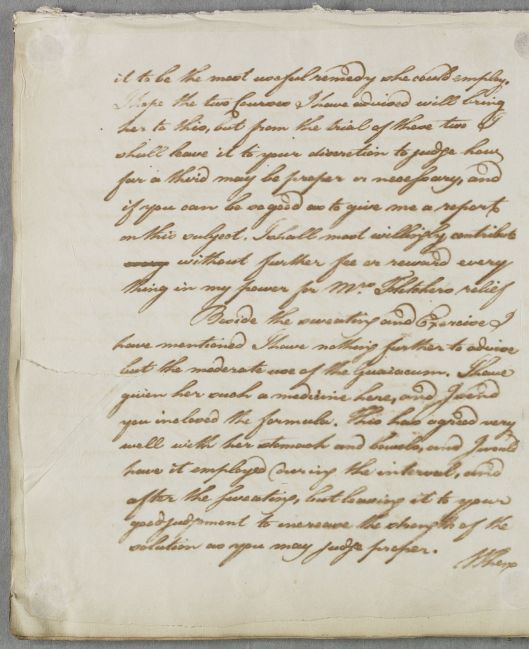 it to be the most useful remedy she could employ.
I hope the two Courses I have advised will bring
her to this, but from the trial of these two I
shall leave it to your discretion to judge how
far a third may be proper or necessary, and
if you can be so good as to give me a report
on this subject. I shall most willingly contribute
without further fee or reward every
thing in my power for Mrs. Fletchers relief
Beside the sweating and Exercise I
have mentioned I have nothing further to advise
but the moderate use of the Guaiacum. I have
given her such a medicine here, and I send
you inclosed the formula. This has agreed very
well with her stomach and bowels, and I would
have it employed during the interval, and
after the sweating, but leaving it to your
good judgment to increase the strength of the
solution as you may judge proper.
When